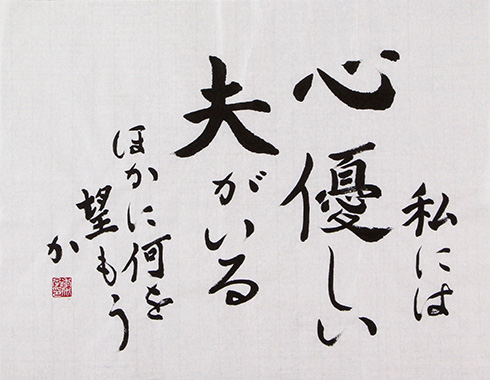 私には
心優しい
夫がいる
ほかに何を
望もう
か